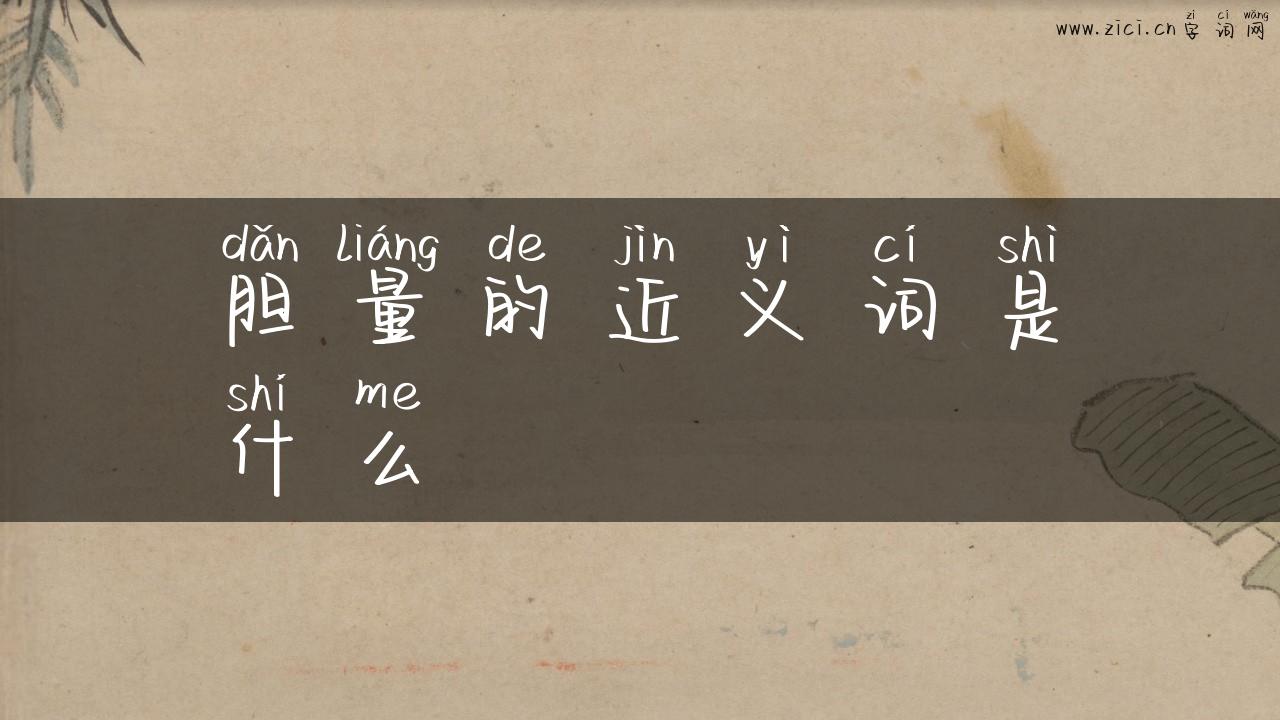 zì cí wǎng
www.zici.cn 字词网
dǎn liáng de jìn yì cí shì
胆量的近义词是
shí me
什么